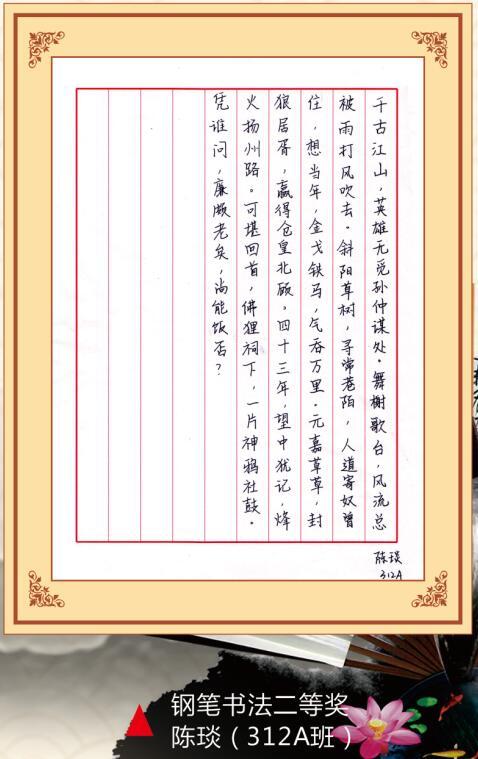 千古江山，英雄无觅孙仲谋处。舞榭歌台，风流总
被雨打风吹去。斜阳草树，寻常巷陌，人道寄奴曾
住，想当年，金戈铁马，气吞万里。元嘉草草，封
狼居胥，赢得仓皇北顾。四十三年，望中犹记，烽
火扬州路。可堪回首，佛狸祠下，一片神鸦社鼓。
凭谁问，廉颇老矣，尚能饭否？
陈琰
312A
钢笔书法二等奖
陈琰（312A班）